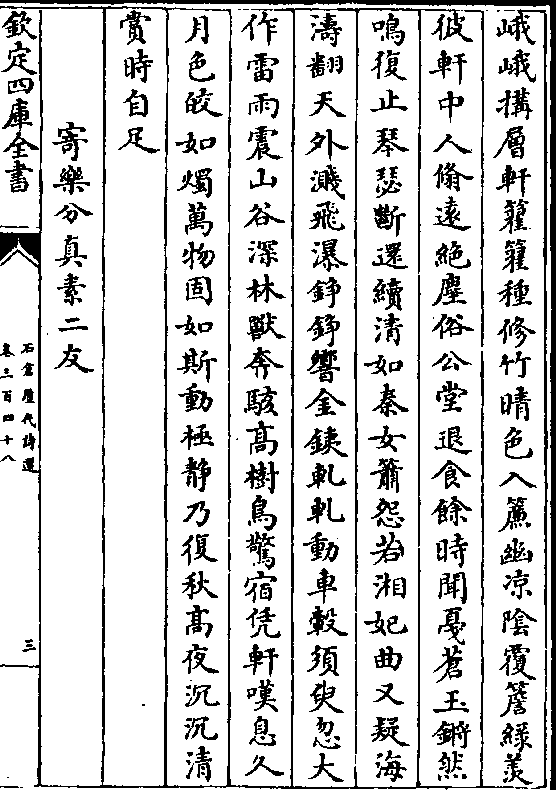 峨峨搆層軒籊籊種修竹晴色入簾幽凉陰覆簷綠羨
彼軒中人翛遠絶塵俗公堂退食餘時聞戞蒼玉鏘然
鳴復止琴瑟斷還續清如秦女簫怨若湘妃曲又疑海
濤翻天外濺飛瀑錚錚響金鐵軋軋動車轂須臾忽大
作雷雨震山谷深林獸奔駭髙樹鳥驚宿凭軒嘆息久
月色皎如燭萬物固如斯動極静乃復秋髙夜沉沉清
賞時自足
寄樂分真素二友
欽定四庫全書
石倉歷代詩選
卷三百四十八
三